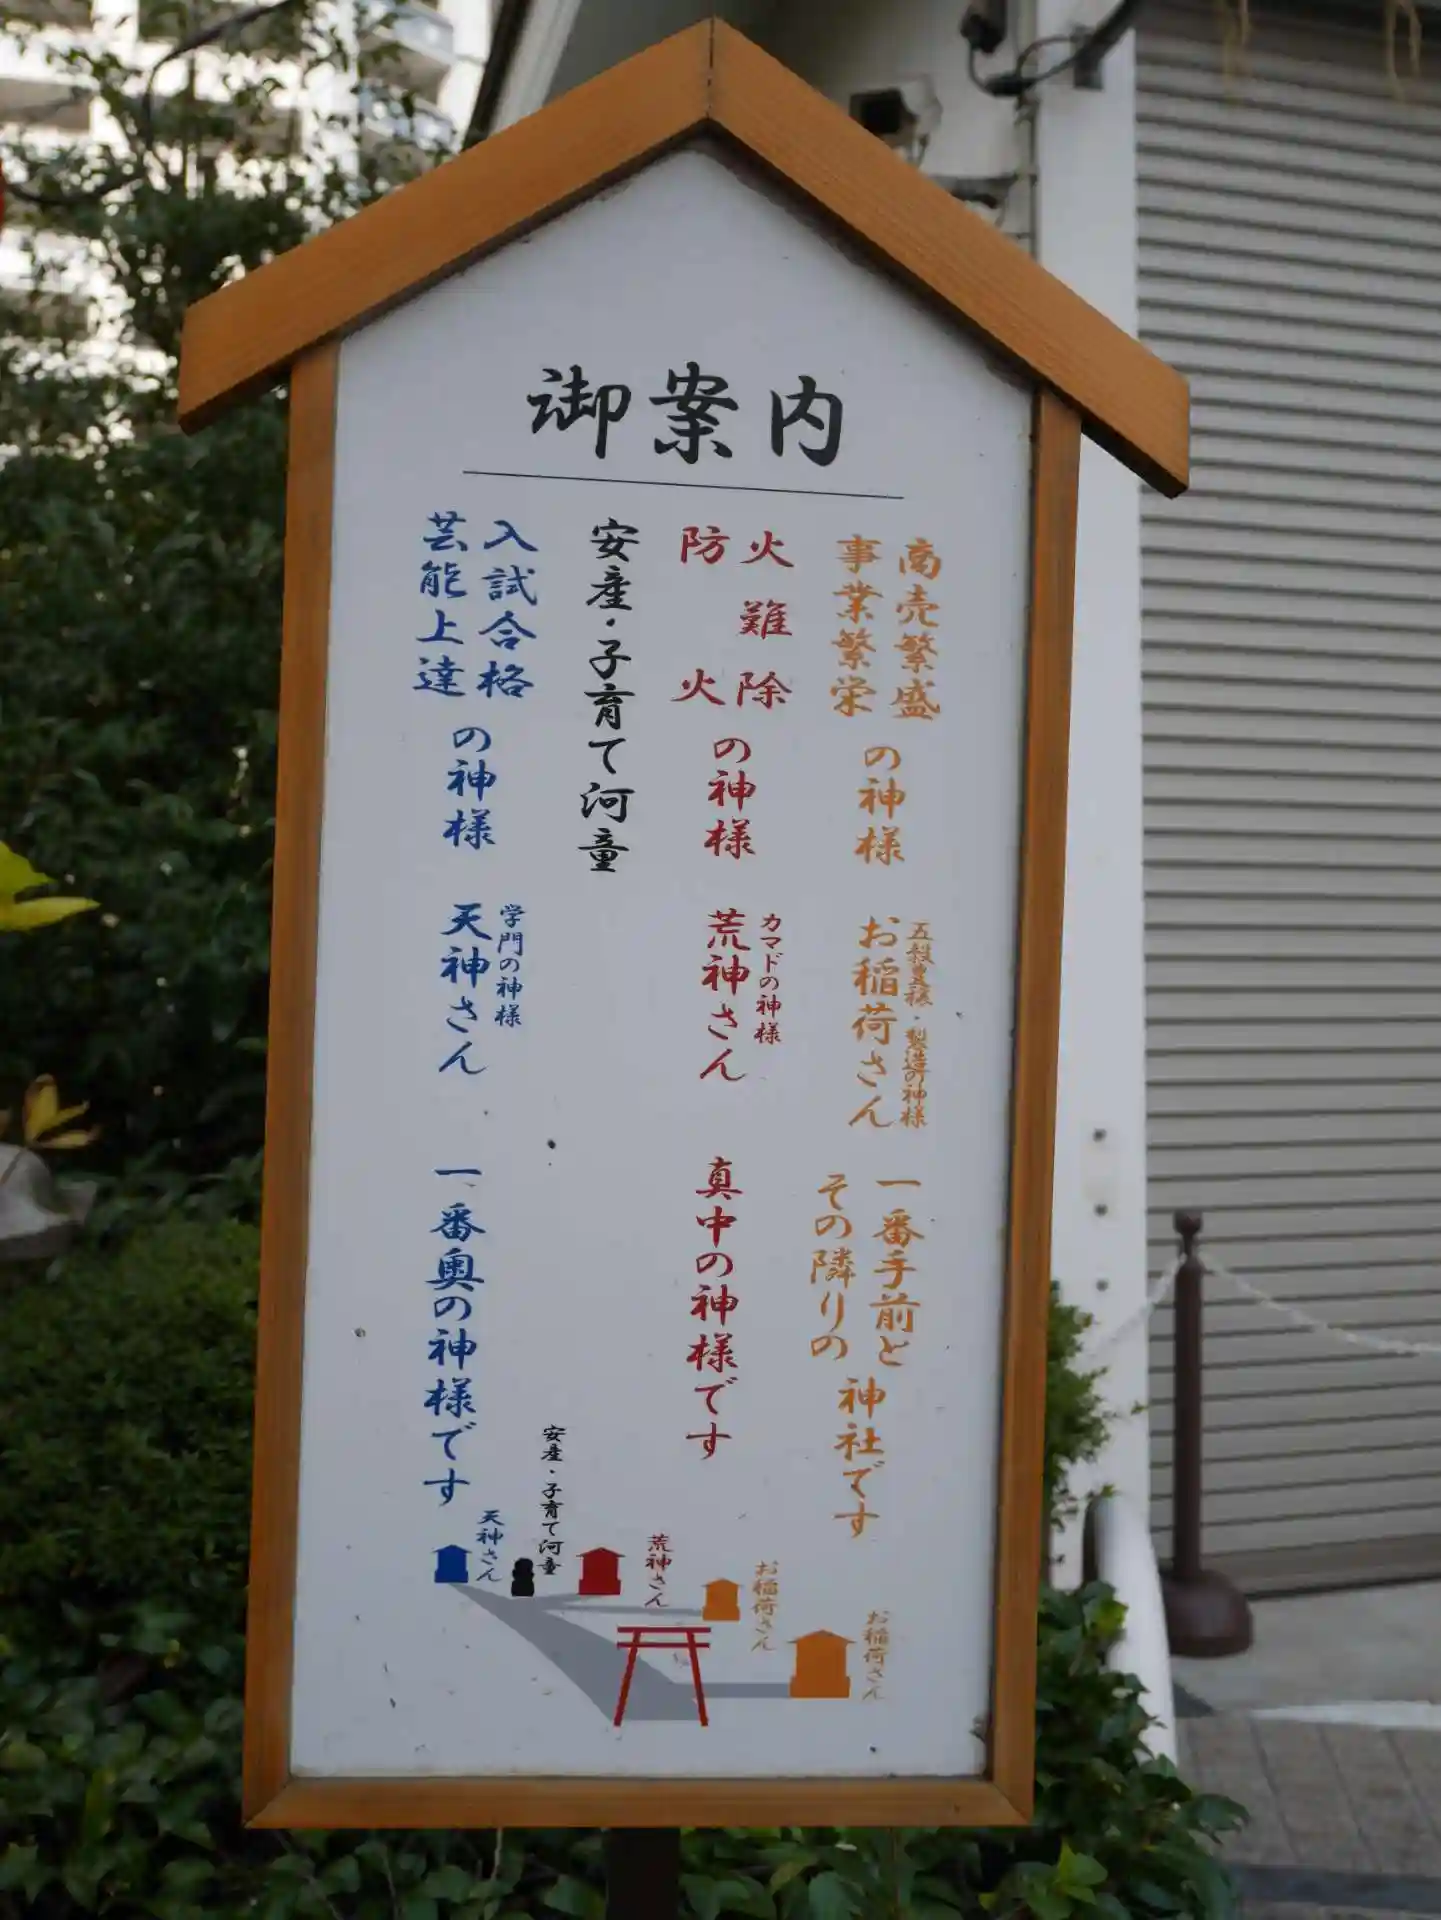 御案内
商売繁盛
事業繁栄
の神様
五穀豊穣・製造の神様
お稲荷さん
一番手前と
その隣りの
神社です
火難除
防火
の神様
カマドの神様
荒神さん
真中の神様です
安産・子育て河童
入試合格
芸能上達
の神様
学門の神様
天神さん
一番奥の神様です
天神さん
安産・子育て河童
荒神さん
お稲荷さん
お稲荷さん